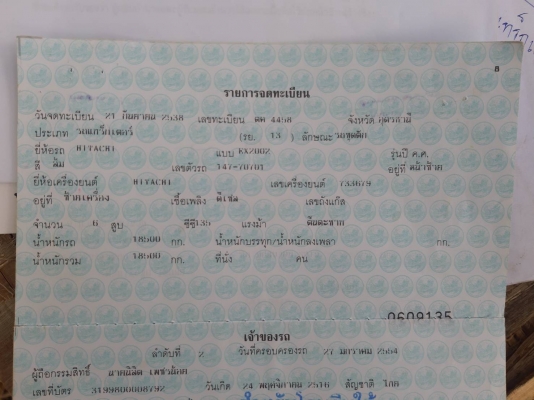 8
รายการจดทะเบียน
วันจดทะเบียน 21 กันยายน 2538 เลขทะเบียน ตค 4458 จังหวัด อุดรธานี
ประเภท รถแทร็กเตอร์ (รย. 13 ) ลักษณะ รถขุดตัก
ยี่ห้อรถ HITACHI แบบ รุ่นปี ค.ศ.
สี ส้ม เลขตัวรถ 147-70701 อยู่ที่ หน้าซ้าย
ยี่ห้อเครื่องยนต์ HITACHI เลขเครื่องยนต์ 733879
อยู่ที่ ข้างเครื่อง เชื้อเพลิง ดีเซล เลขถังแก๊ส
จำนวน 6 สูบ ซีซี แรงม้า ตีนตะขาบ
น้ำหนักรถ 18500 กก. น้ำหนักบรรทุก/น้ำหนักลงเพลา กก.
น้ำหนักรวม 18500 กก. ที่นั่ง คน
0609135
เจ้าของรถ
ลำดับที่ 2 วันที่ครอบครองรถ 27 มกราคม 2554
ผู้ถือกรรมสิทธิ์
เลขที่บัตร 3199800008792 วันเกิด 24 พฤศจิกายน 2516 สัญชาติ ไทย